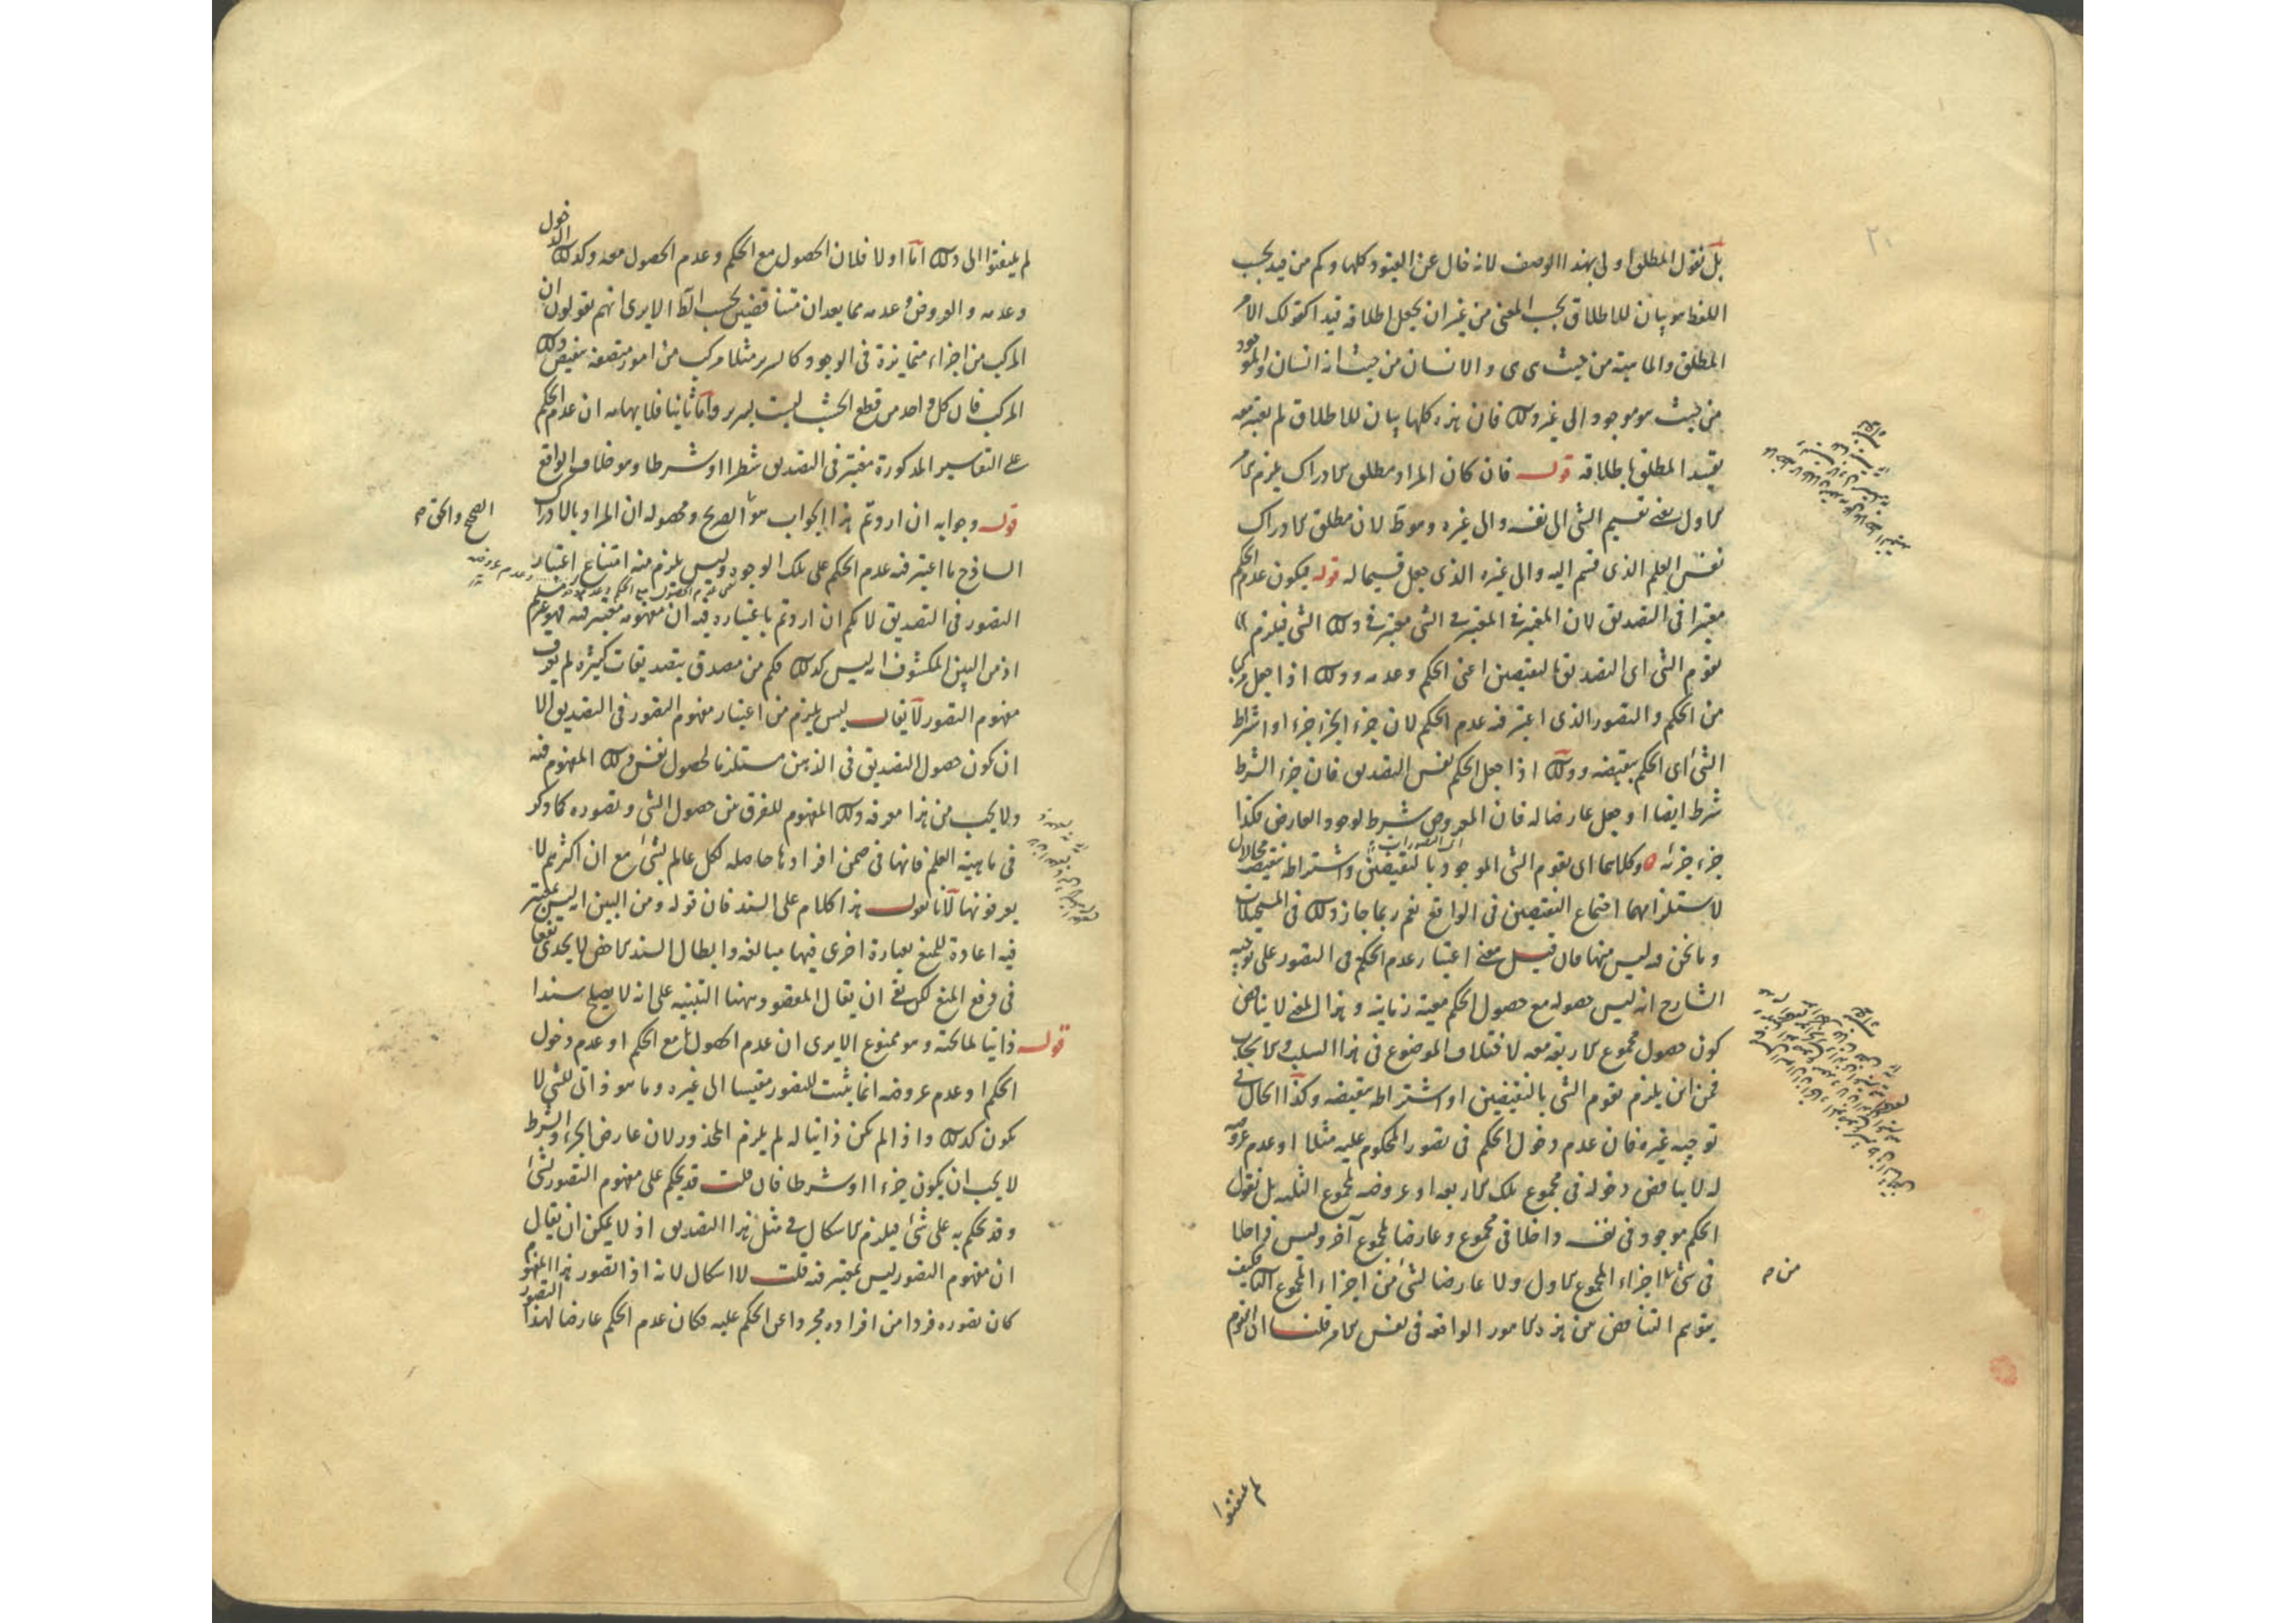 بل نقول المطلق اولى بهذا الوصف لانه خال عن القيود كلها وكم من قيد بحسب
اللفظ هو بيان للاطلاق بحسب المعنى من غير ان يجعل اطلاقه قيدا كقولك الامر
المطلق والماهية من حيث هي هي والانسان من حيث انه انسان والموجود
من حيث هو موجود الى غير ذلك فان هذه كلها بيان للاطلاق لم يعتبر معه
تقييد المطلق باطلاقه قوله فان كان المراد مطلق الادراك يلزم الامر
الاول يعنى تقسيم الشئ الى نفسه والى غيره وهو ظ لان مطلق الادراك
نفس العلم الذى قسم اليه والى غيره الذى جعل قسيما له قوله فيكون عدم الحكم
معتبرا فى التصديق لان المعتبر فى المعتبر فى الشئ معتبر فى ذلك الشئ فيلزم اما
تقوم الشئ اى التصديق بالنقيضين اعنى الحكم وعدمه وذلك اذا جعل مركبا
من الحكم والتصور الذى اعتبر فيه عدم الحكم لان جزء الجزء جزء او اشتراط
الشئ اى الحكم بنقيضه وذلك اذا جعل الحكم نفس التصديق فان جزء الشرط
شرط ايضا او جعل عارضا له فان المعروض شرط لوجود العارض فكذا
جزء جزئه وكلاهما اى تقوم الشئ الموجود بالنقيضين واشتراطه بنقيضه محالان
لاستلزامهما اجتماع النقيضين فى الواقع نعم ربما جاز ذلك فى المستحيلات
وما نحن فيه ليس منها فان قيل معنى اعتبار عدم الحكم فى التصور على توجيه
الشارح انه ليس حصوله مع حصول الحكم معية زمانية وهذا المعنى لا يناقض
كون حصول مجموع الاربعة معه لاختلاف الموضوع فى هذا السلب والايجاب
فمن اين يلزم تقوم الشئ بالنقيضين او اشتراطه بنقيضه وكذا الحال فى
توجيه غيره فان عدم دخول الحكم فى تصور المحكوم عليه مثلا او عدم عروضه
له لا يناقض دخوله فى مجموع تلك الاربعة او عروضه لمجموع الثلثة بل نقول
الحكم موجود فى نفسه داخلا فى مجموع وعارضا لمجموع آخر وليس داخلا
فى شئ من اجزاء المجموع الاول ولا عارضا لشئ من اجزاء المجموع الثانى فكيف
يتوهم التناقض بين هذه الامور الواقعة فى نفس الامر قلنا ان القوم
من صح
لم يلتفتوا
لم يلتفتوا الى ذلك اما اولا فلان الحصول مع الحكم وعدم الحصول معه وكذلك الدخول
وعدمه والعروض وعدمه مما يعدان متناقضين بحسب الظ الا يرى انهم يقولون ان
المركب من اجزاء متمايزة فى الوجود كالسرير مثلا مركب من امور متصفة بنقيض ذلك
المركب فان كل واحد من قطع الخشب ليست بسرير واما ثانيا فلايهامه ان عدم الحكم
على التفاسير المذكورة معتبر فى التصديق شطرا او شرطا وهو خلاف الواقع
قوله وجوابه ان اردتم هذا الجواب هو الصريح ومحصوله ان المراد بالادراك
الصحيح والحق صح
الساذج ما اعتبر فيه عدم الحكم على تلك الوجوه وليس يلزم منه امتناع اعتبار
التصور فى التصديق لانكم ان اردتم باعتباره فيه ان مفهومه معتبر فيه فهو غير مسلم
اذ من البين المكشوف انه ليس كذلك فكم من مصدق بتصديقات كثيرة لم يعرف
مفهوم التصور لا يقال ليس يلزم من اعتبار مفهوم التصور فى التصديق الا
ان يكون حصول التصديق فى الذهن مستلزما لحصول نفس ذلك المفهوم فيه
ولا يجب من هذا معرفة ذلك المفهوم للفرق بين حصول الشئ وتصوره كما ذكر
فى ماهية العلم فانها فى ضمن افرادها حاصلة لكل عالم بشئ مع ان اكثرهم لا
يعرفونها لانا نقول هذا كلام على السند فان قوله ومن البين انه ليس بمعتبر
فيه اعادة للمنع بعبارة اخرى فيها مبالغة وابطال السند الاخص لا يجدى نفعا
فى دفع المنع لكن بقى ان يقال المقصود ههنا التنبيه على انه لا يصلح سندا
قوله ذاتيا لما تحته وهو ممنوع الا يرى ان عدم الحصول مع الحكم او عدم دخول
الحكم او عدم عروضه انما يثبت للتصور مقيسا الى غيره وما هو ذاتى للشئ لا
يكون كذلك واذا لم يكن ذاتيا له لم يلزم المحذور لان عارض الجزء والشرط
لا يجب ان يكون جزءا او شرطا فان قلت قد يحكم على مفهوم التصور بشئ
وقد يحكم به على شئ فيلزم الاشكال فى مثل هذا التصديق اذ لا يمكن ان يقال
ان مفهوم التصور ليس بمعتبر فيه قلت لا اشكال لانه اذا تصور هذا المفهوم
كان تصوره فردا من افراده مجردا عن الحكم عليه فكان عدم الحكم عارضا لهذا التصور